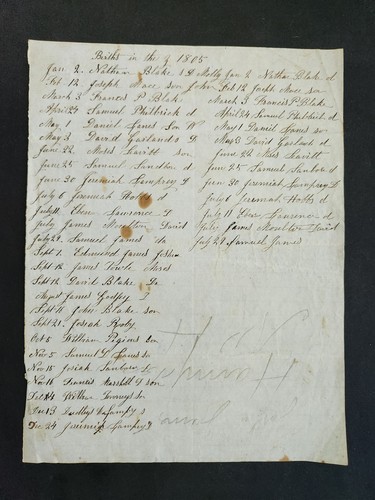 Births in the y 1805
Jan 2. Nathan Blake & D Molly
Feb 12 Joseph Mace son John
March 3 Francis P Blake
April 24 Samuel Philbrick d
May 1 Daniel James Son W
May 3 David Garland D
June 22 Moses Leavitt son
June 25 Samuel
June 30 Jeremiah Lamprey D
July 6 Jeremiah Hobbs d
July 11 Eben Lawrence D
July James Moulton David
July 29 Samuel James da
Sept 1. Edmund James
Sept 12 James Towle
Sept 12 David Blake Da
James Godfry D
Sept 11 John Blake son
Sept 21. Josiah
Oct 5 William son
Nov 5 Samuel D James
Nov 15 Josiah Sanborn
Nov 16 Francis Marshall D son
14 William son
Dec 13 Dudley
Dec 24 Jeremiah Lamprey D
Jan 2 Nathan Blake d
Feb 12 Joseph Mace son
March 3 Francis P. Blake
April 24 Samuel Philbrick d
May 1 Daniel James son
May 3 David Garland d
June 22 Moses Leavitt
June 25 Samuel d
June 30 Jeremiah Lamprey D
July 6 Jeremiah Hobbs d
July 11 Eben Lawrence d
July James Moulton David
July 29 Samuel James